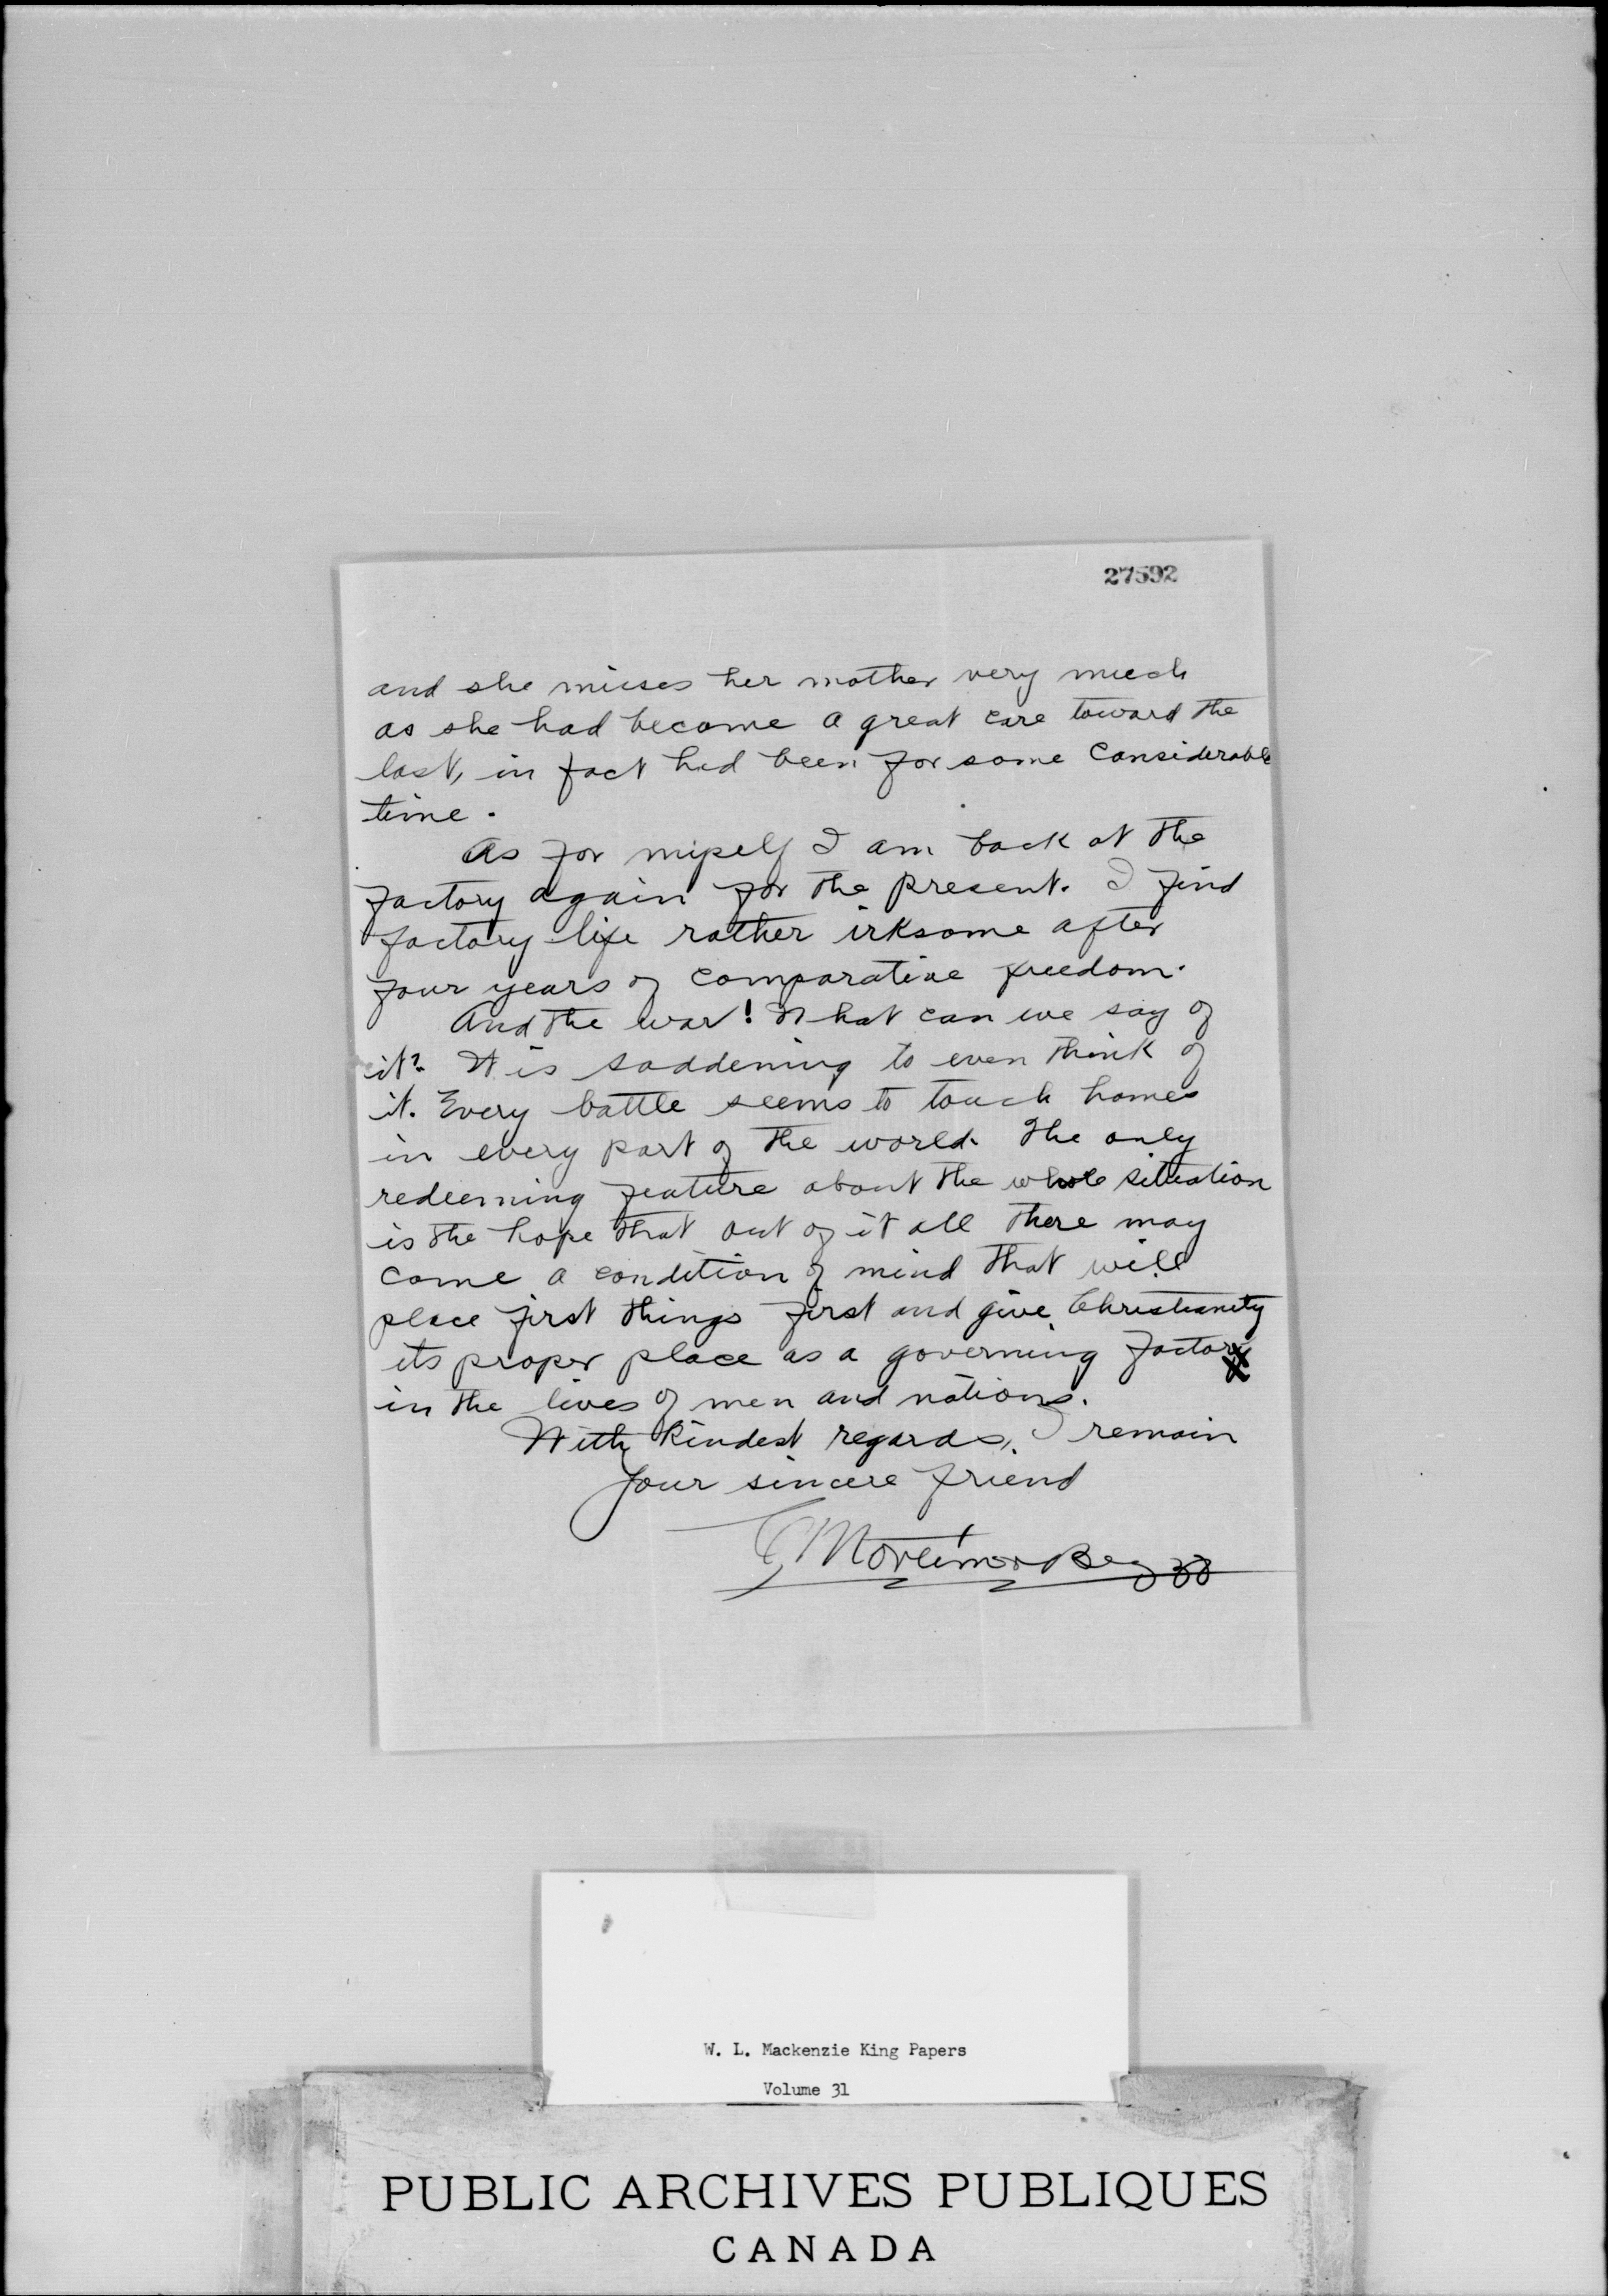 27592
and she misses her mother very much
as she had become a great care toward the
last, in fact had been for some considerable
time.
As for myself I am back at the
factory again for the present. I find
factory life rather irksome after
four years of comparative freedom.
And the war! What can we say of
it? It is saddening to even think of
it. Every battle seems to touch homes
in every part of the world. The only
redeeming feature about the whole situation
is the hope that out of it all there may
come a condition of mind that will
place first things first and give Christianity
its proper place as a governing factor
in the lives of men and nations.
With kindest regards, I remain
Your sincere friend
Mortimer Beggs
W. L. Mackenzie King Papers
Volume 31
PUBLIC ARCHIVES PUBLIQUES
CANADA